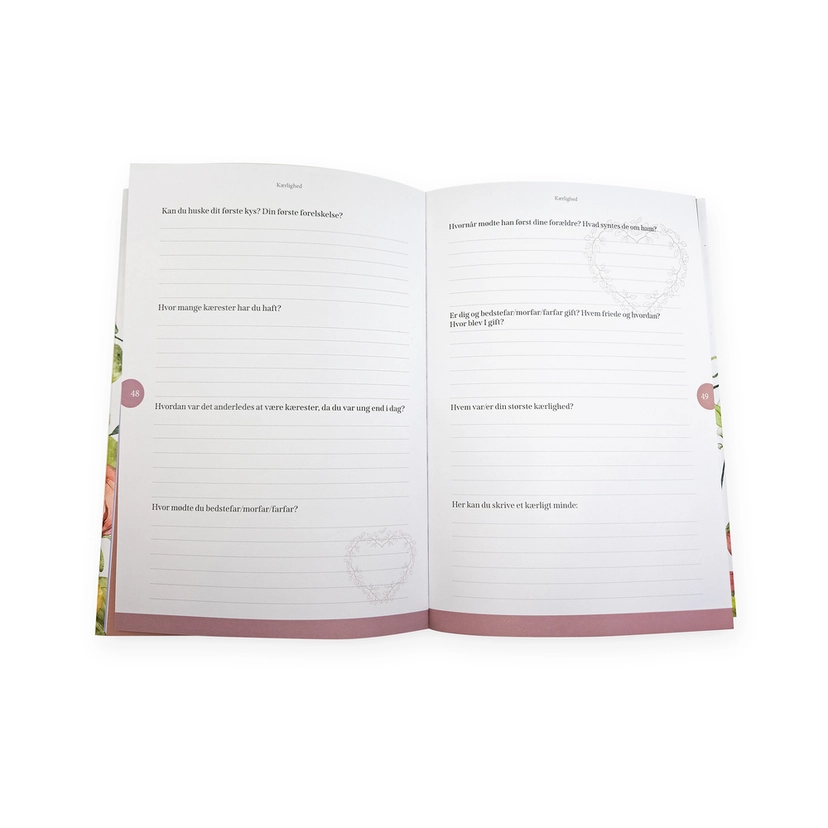 Kærlighed
Kan du huske dit første kys? Din første forelskelse?
Hvor mange kærester har du haft?
48
Hvordan var det anderledes at være kærester, da du var ung end i dag?
Hvor mødte du bedstefar/morfar/farfar?
Kærlighed
Hvornår mødte han først dine forældre? Hvad syntes de om ham?
Er dig og bedstefar/morfar/farfar gift? Hvem friede og hvordan?
Hvor blev I gift?
49
Hvem var/er din største kærlighed?
Her kan du skrive et kærligt minde: